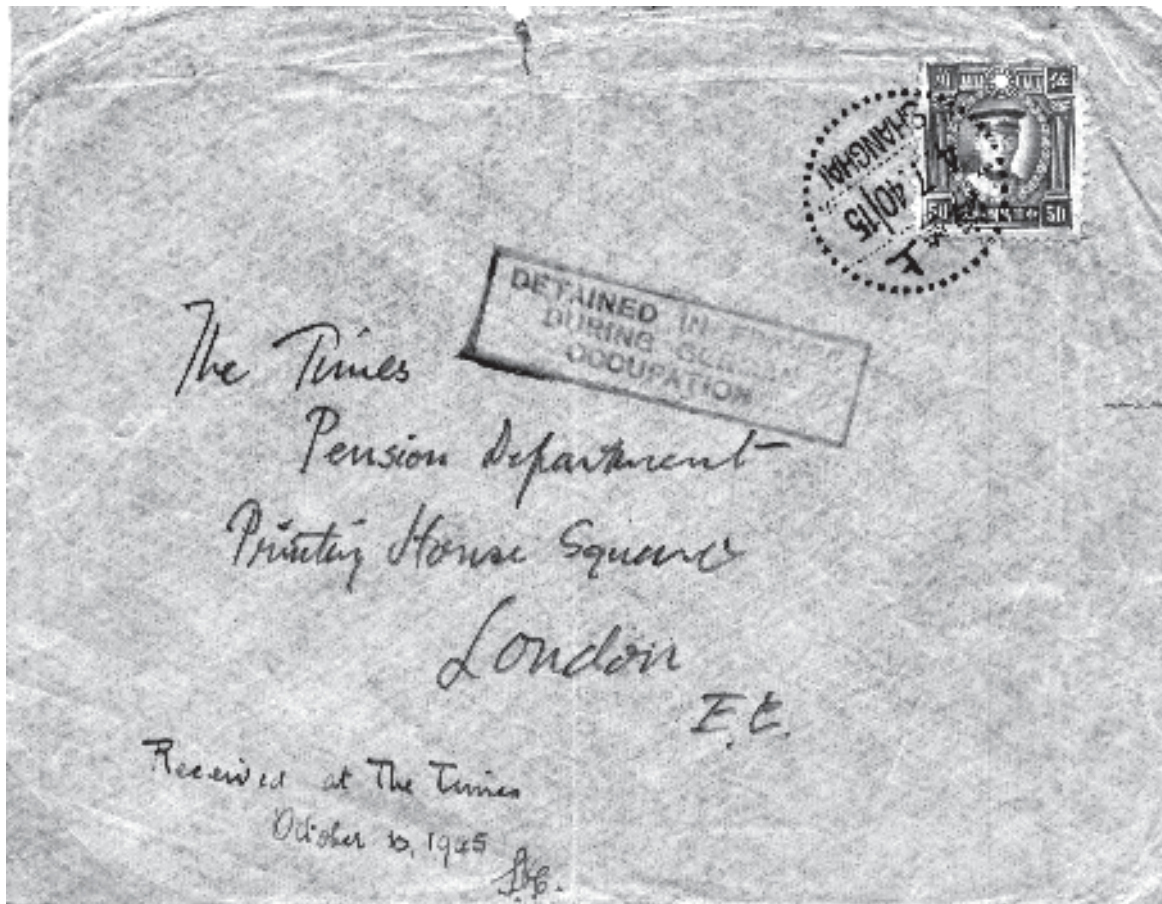 SHANGHAI
40 15
50 50
DETAINED IN
DURING GERMAN
OCCUPATION
The Times
Pension Department
Printing House Square
London
E.C.
Received at The Times
October 1945